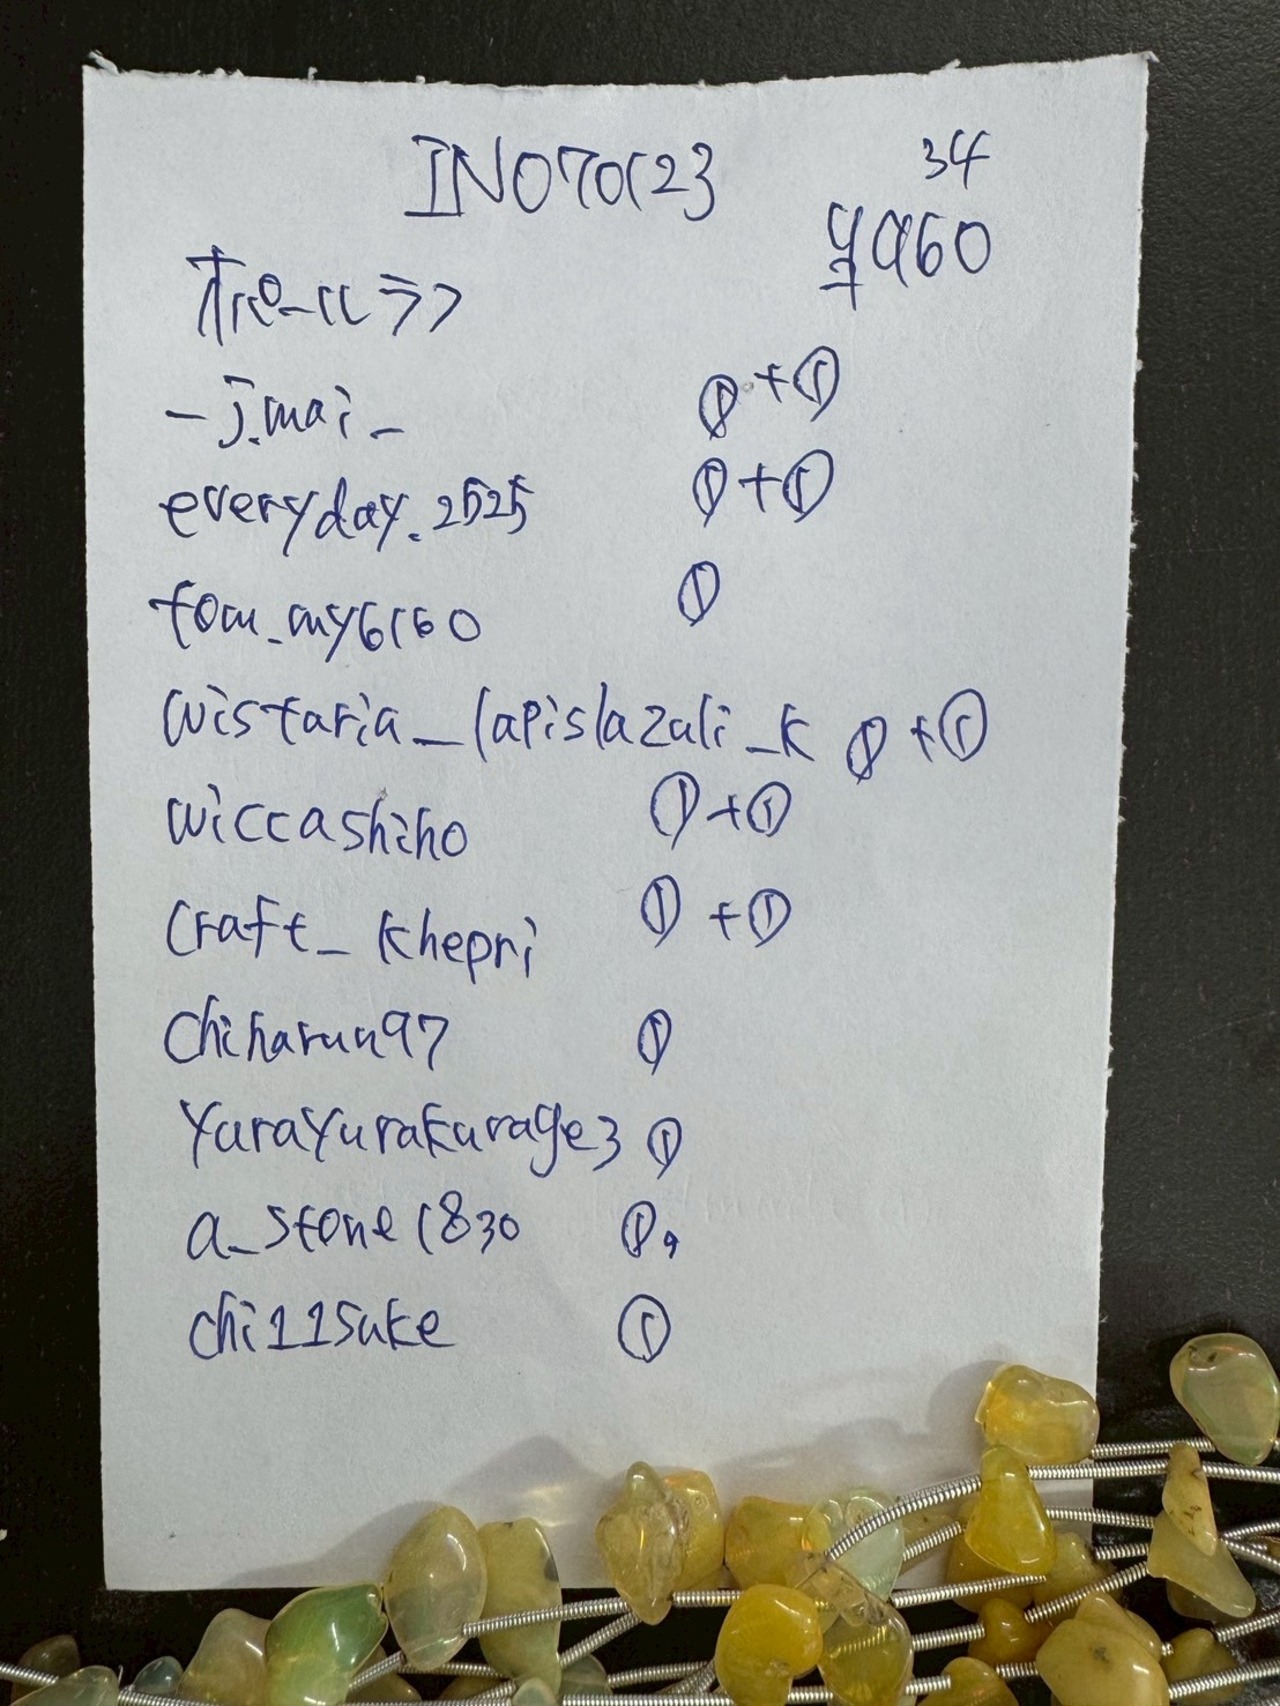 INO70123
34
¥9960
オパールさざれ
-j.mai_ ①+①
everyday.2525 ①+①
tom_my6160 ①
wistaria_lapislazuli_k ①+①
wiccashiho ①+①
craft_khepri ①+①
chiharun97 ①
yurayurakurage3 ①
a_stone1830 ①,
chi11suke ①